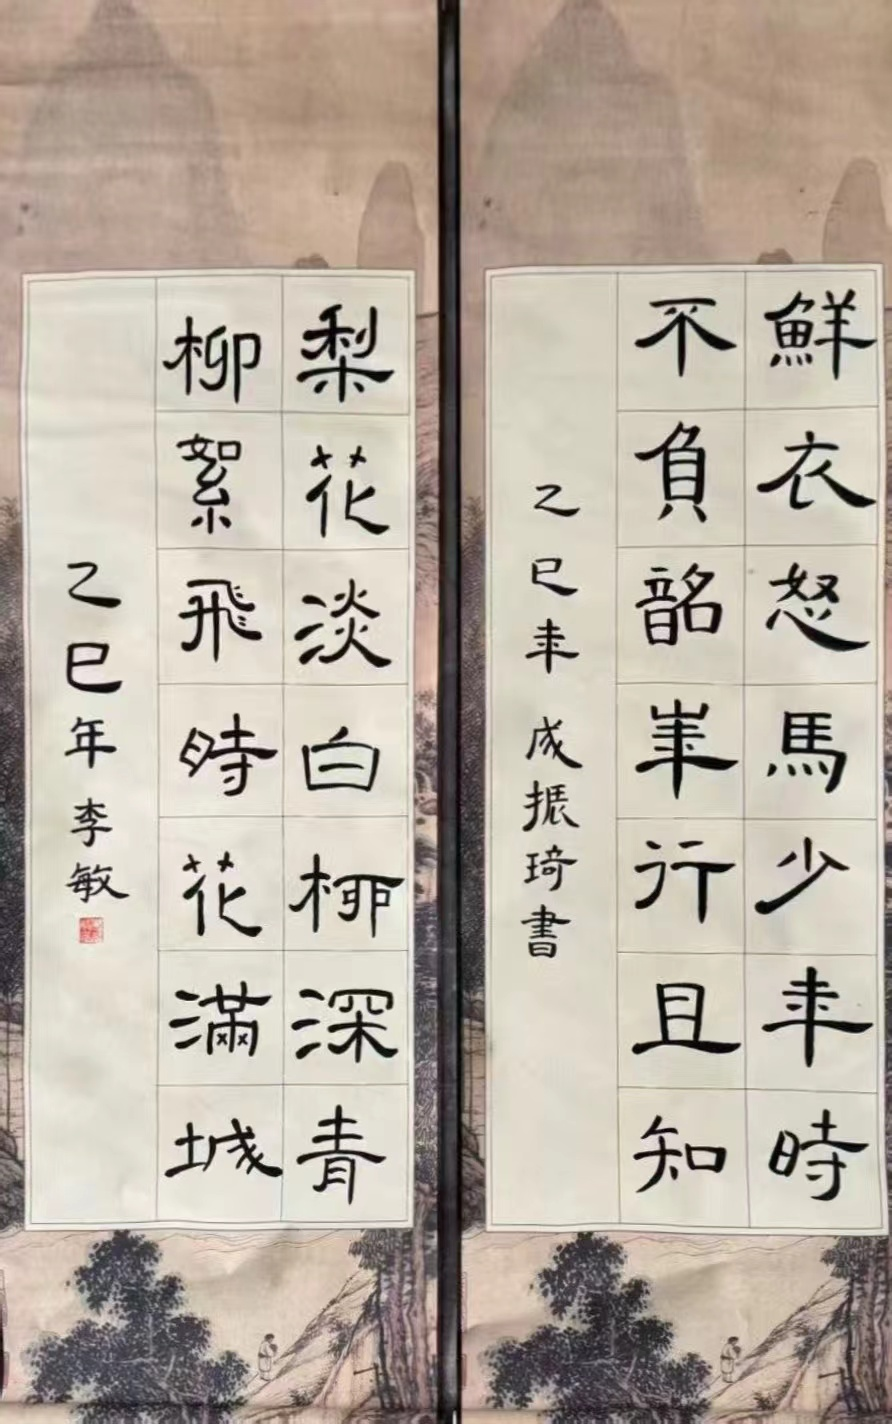 鮮衣怒馬少年時
不負韶華行且知
乙巳年 成振琦書
梨花淡白柳深青
柳絮飛時花滿城
乙巳年 李敏